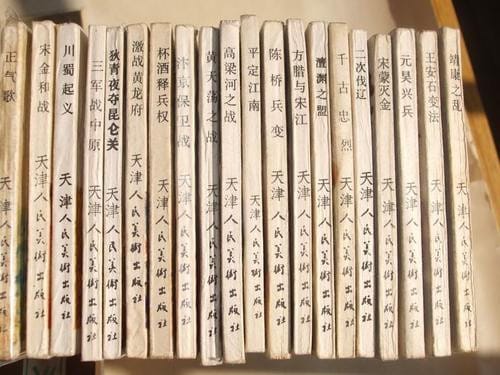 正气歌
天津人民美術出版社
宋金和战
天津人民美術出版社
川蜀起义
天津人民美術出版社
三军战中原
天津人民美術出版社
狄青夜夺昆仑关
天津人民美術出版社
激战黄龙府
天津人民美術出版社
杯酒释兵权
天津人民美術出版社
汴京保卫战
天津人民美術出版社
黄天荡之战
天津人民美術出版社
高梁河之战
天津人民美術出版社
平定江南
天津人民美術出版社
陈桥兵变
天津人民美術出版社
方腊与宋江
天津人民美術出版社
澶渊之盟
天津人民美術出版社
千古忠烈
天津人民美術出版社
二次伐辽
天津人民美術出版社
宋蒙灭金
天津人民美術出版社
元昊兴兵
天津人民美術出版社
王安石变法
天津人民美術出版社
靖康之乱
天津人民美術出版社